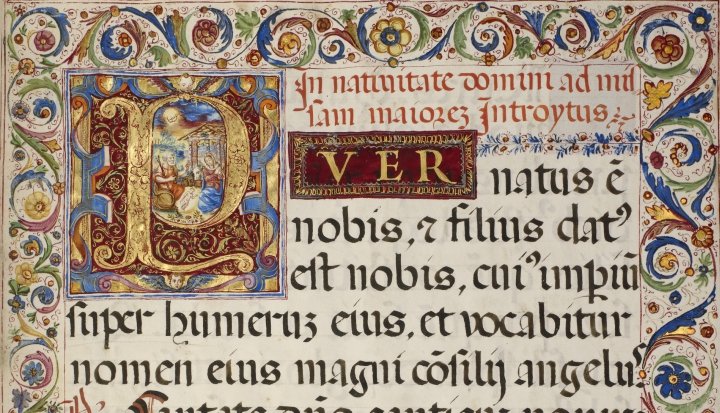 In nativitate domini ad miſ
ſam maiorez Introytus.
P VER
natus ē
nobis, ⁊ filius datꝰ
est nobis, cuiꝰ imꝑiū
super humeruz eius, et vocabitur
nomen eius magni cōsilij angelus.
Cantate dño canticum novum